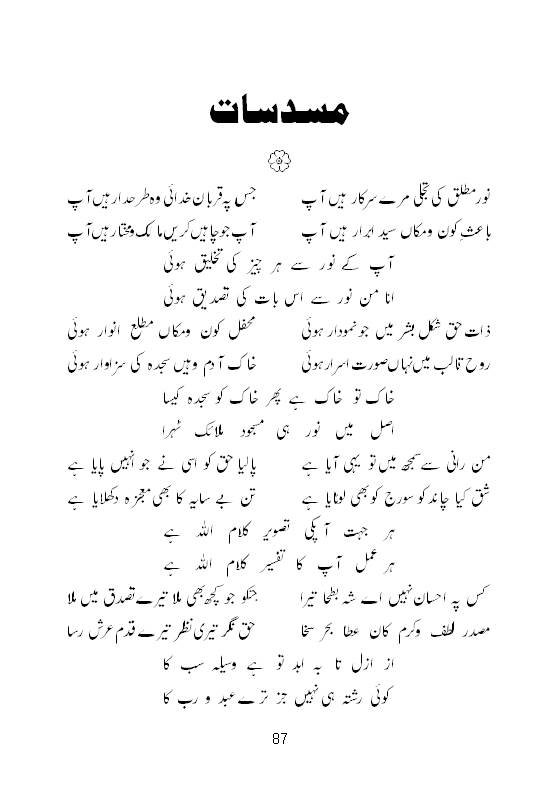 مسدسات
نور مطلق کی تجلی مرے سرکار ہیں آپ جس پہ قربان خدائی وہ طرحدار ہیں آپ
باعثِ کون ومکاں سید ابرار ہیں آپ آپ جو چاہیں کریں مالک ومختار ہیں آپ
آپ کے نور سے ہر چیز کی تخلیق ہوئی
انا من نور سے اس بات کی تصدیق ہوئی
ذات حق شکل بشر میں جو نمودار ہوئی محفل کون ومکاں مطلع انوار ہوئی
روح قالب میں نہاں صورت اسرار ہوئی خاک آدم وہیں سجدہ کی سزاوار ہوئی
خاک تو خاک ہے پھر خاک کو سجدہ کیسا
اصل میں نور ہی مسجود ملائک ٹہرا
من رانی سے سمجھ میں تو یہی آیا ہے پالیا حق کو اسی نے جو انہیں پایا ہے
شق کیا چاند کو سورج کو بھی لوٹایا ہے تن بے سایہ کا بھی معجزہ دکھلایا ہے
ہر جہت آپکی تصویر کلام اللہ ہے
ہر عمل آپ کا تفسیر کلام اللہ ہے
کس پہ احسان نہیں اے شہ بطحا تیرا جنکو جو کچھ بھی ملا تیرے تصدق میں ملا
مصدر لطف وکرم کان عطا بحر سخا حق نگر تیری نظر تیرے قدم عرش رسا
از ازل تا بہ ابد تو ہے وسیلہ سب کا
کوئی رشتہ ہی نہیں جز ترے عبد و رب کا
87